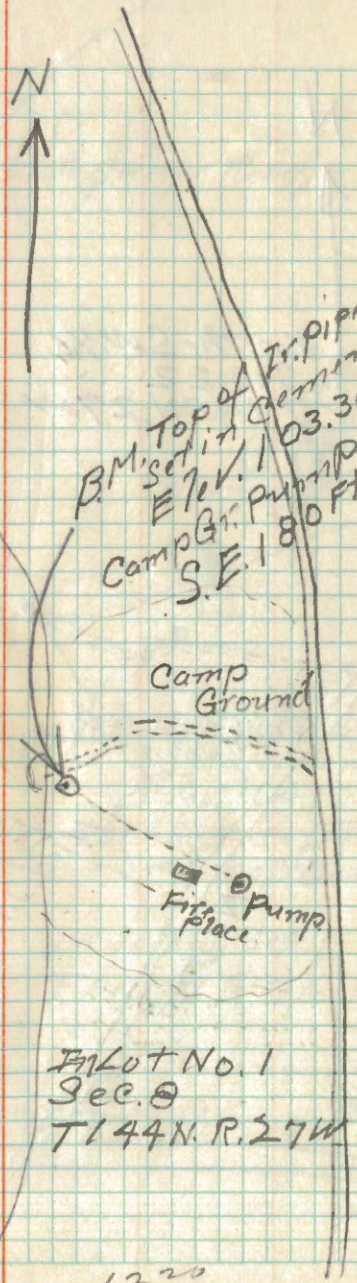 N
B.M. Top of Ir. pip
Set in Cemen
Elev. 103.3
Camp Gr. Pump
S.E. 180 Ft
Camp
Ground
Fire
place
Pump
In Lot No. 1
Sec. 8
T144N. R. 27W